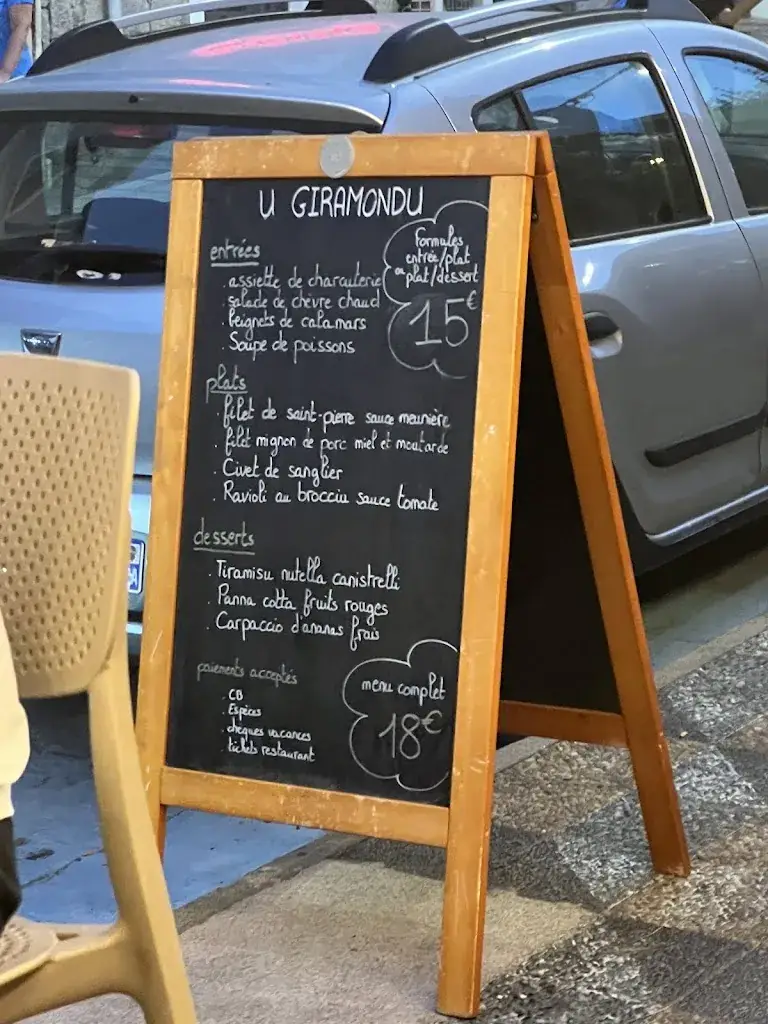 U GIRAMONDU
Formules
entrée/plat
ou plat/dessert
15€
entrées
. assiette de charcuterie
. salade de chèvre chaud
. beignets de calamars
. Soupe de poissons
plats
. filet de saint-pierre sauce meunière
. filet mignon de porc miel et moutarde
. Civet de sanglier
. Ravioli au brocciu sauce tomate
desserts
. Tiramisu nutella canistrelli
. Panna cotta fruits rouges
. Carpaccio d'ananas frais
paiements acceptés
. CB
. Espèces
. chèques vacances
. tickets restaurant
menu complet
18€